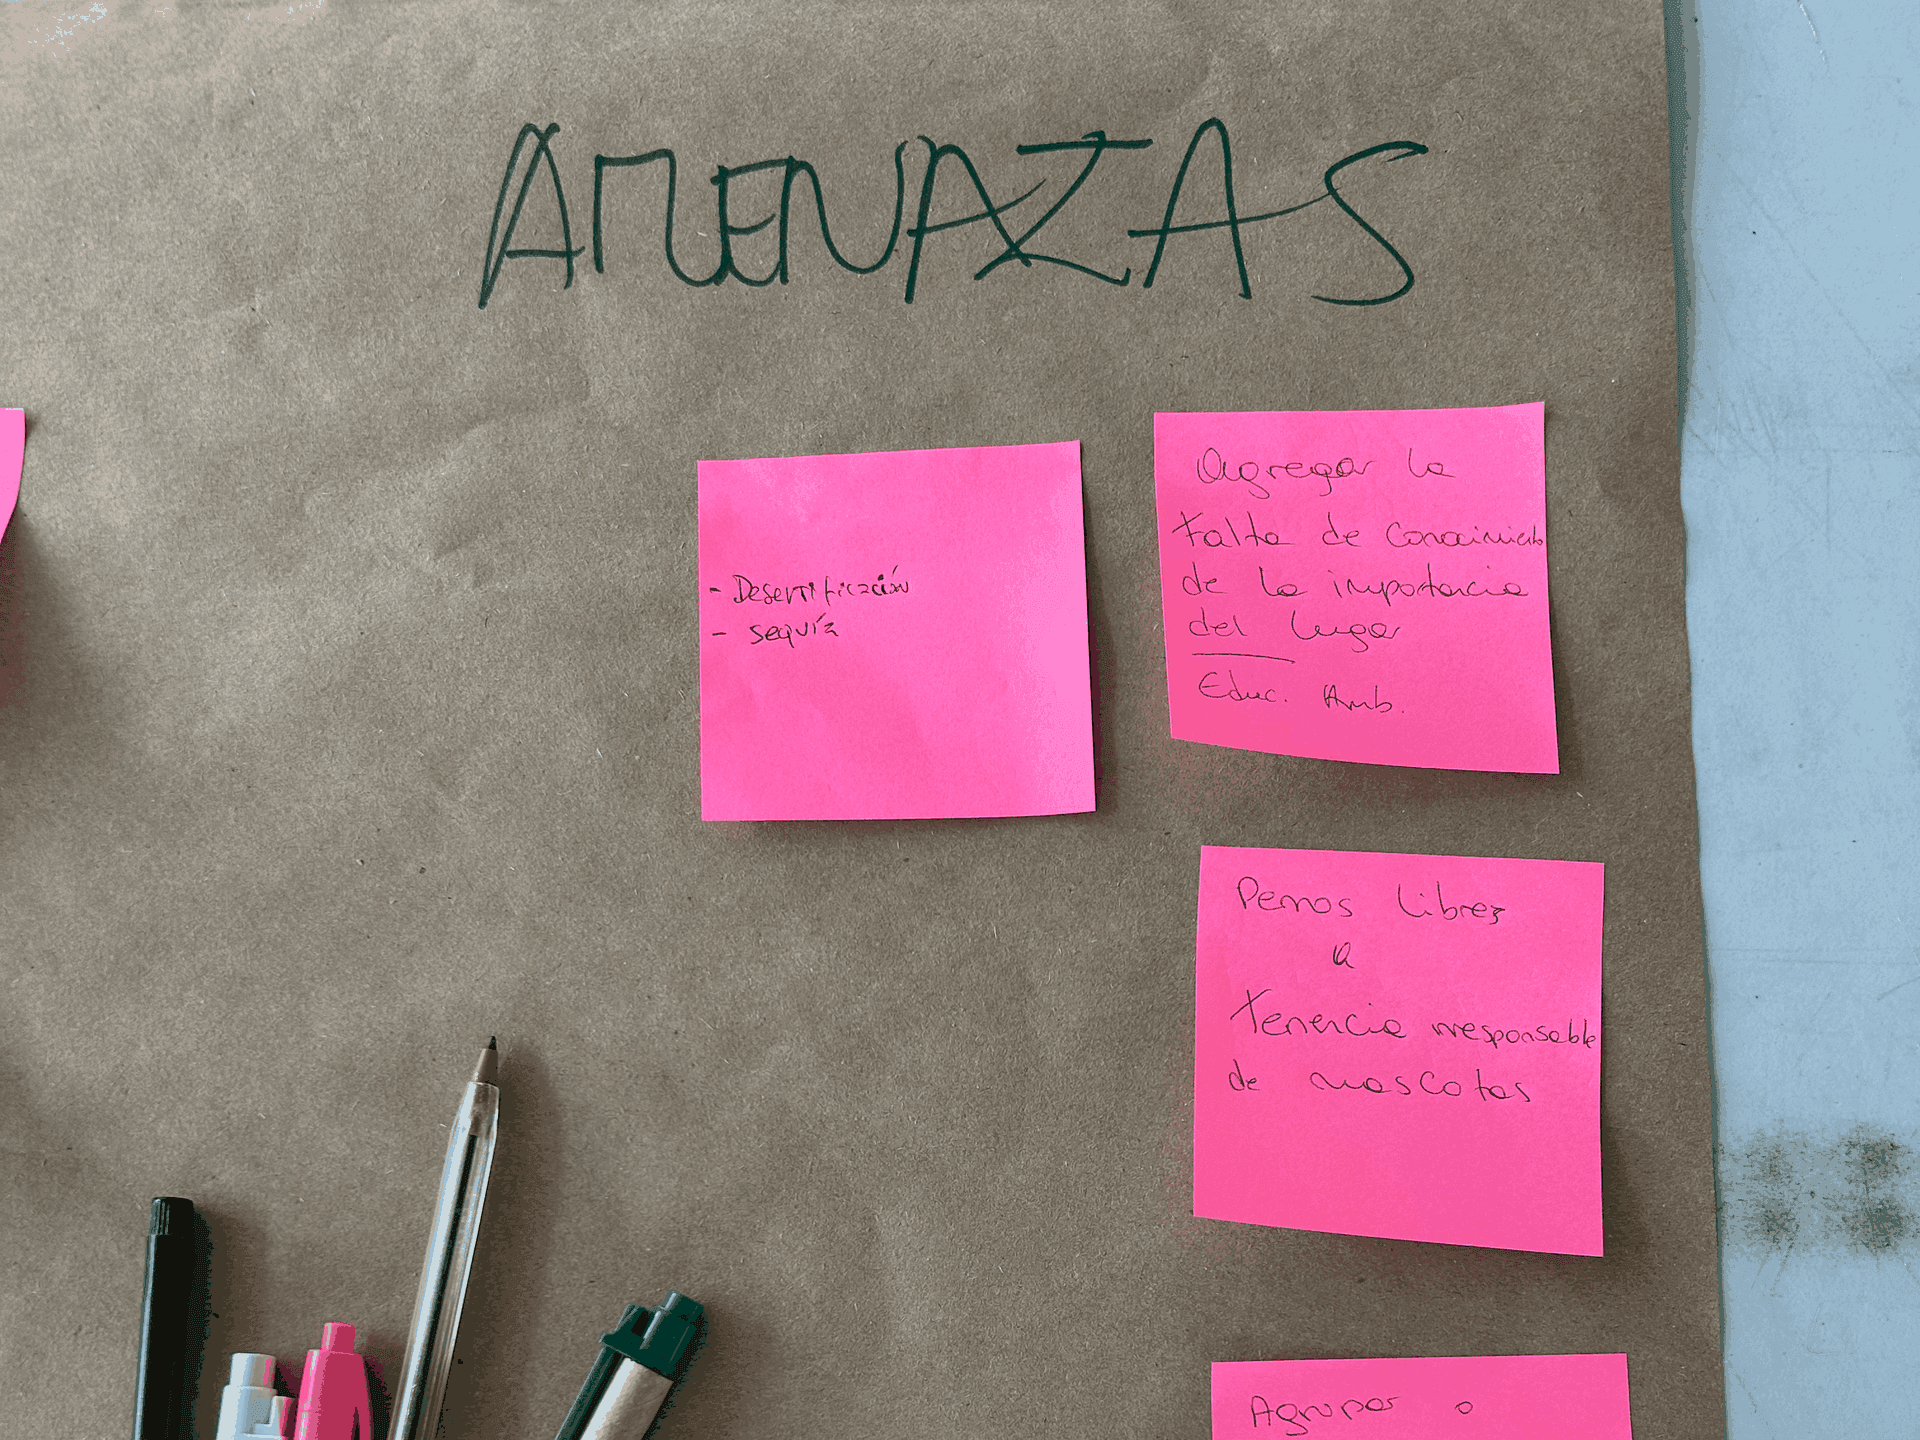 AMENAZAS
- Desertificación
- sequía
Agregar la
falta de conocimiento
de la importancia
del lugar
Educ. Amb.
Perros libres
a
tenencia irresponsable
de mascotas
Agrupar o